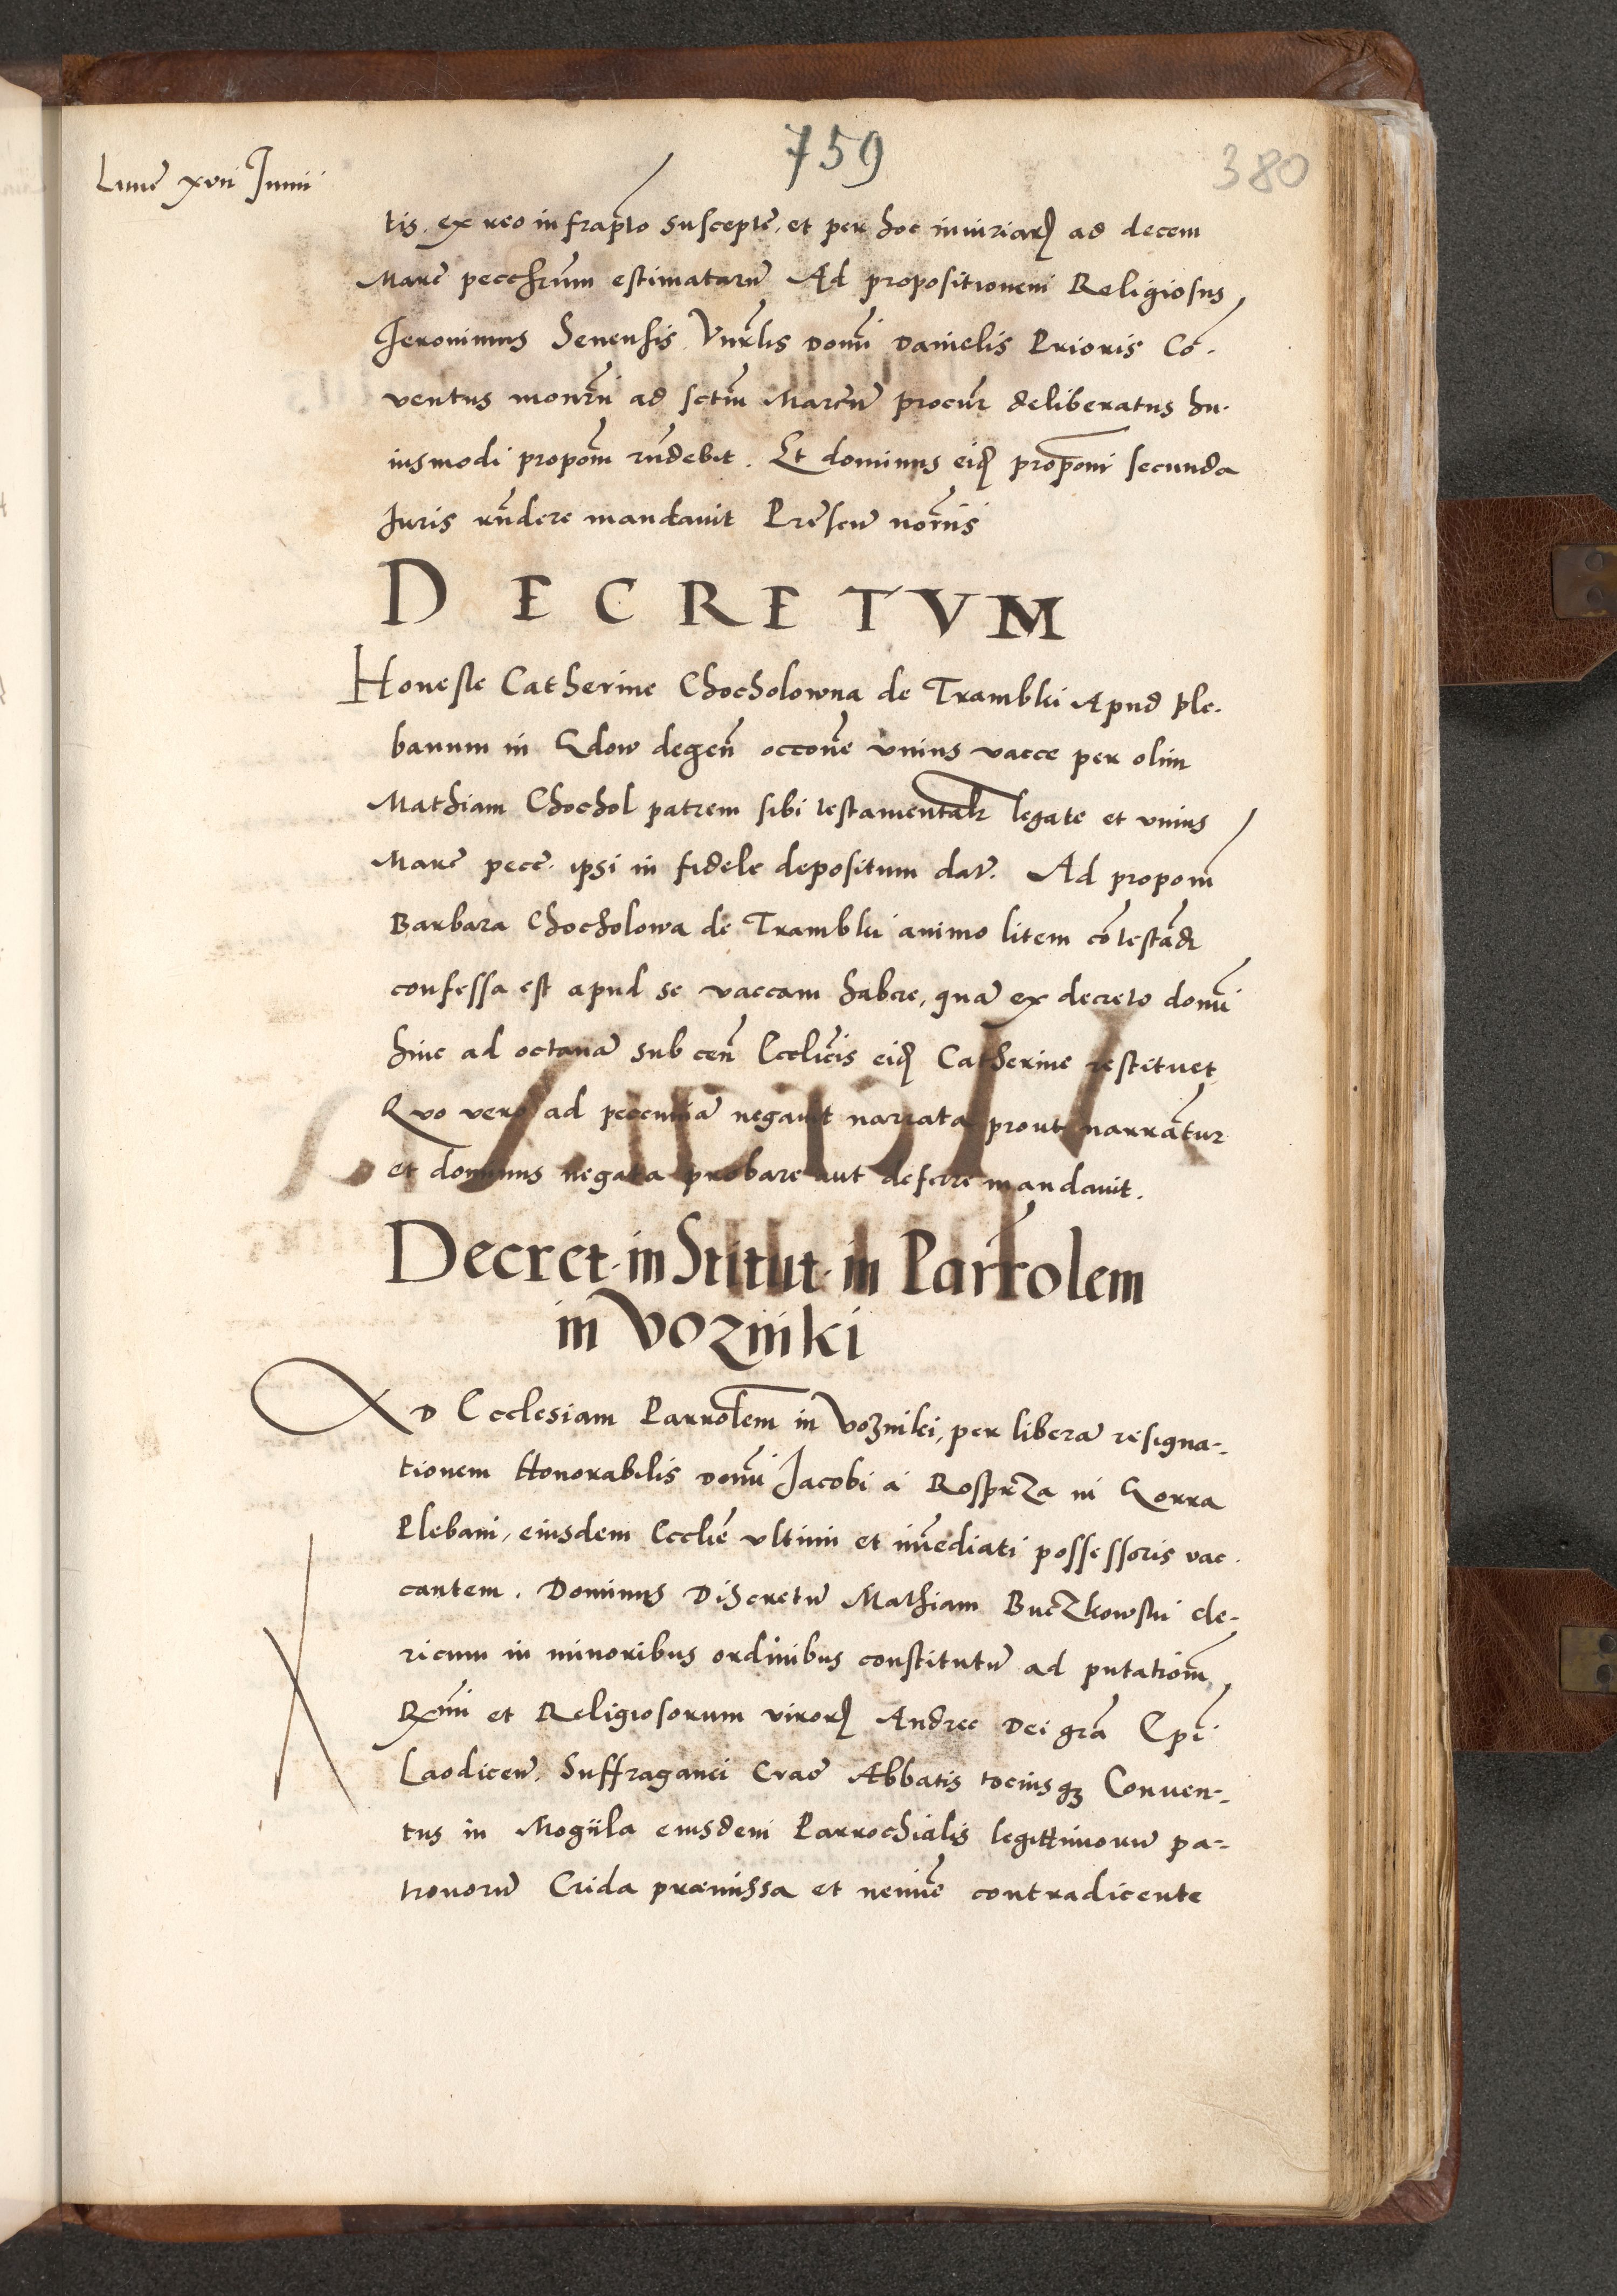 759
380
Lune xvii Junii
tis. ex reo infrapto suscepte, et per hoc iniuriarꝝ ad decem
Marc pecchrum estimataru Ad propositionem Religiosus
Jeronimus Senensis domi Danielis Prioris Co.
ventus monrii ad sctm Marcu procur deliberatus hu.
iusmodi propom rndebit. Et dominus eidꝫ proponi secunda
Juris rndere mandavit
DECRETVM
Honeste Catherine Chocholowna de Trambki Apud ple.
banum in Gdow degen occone unius vacce per olim
Mathiam Chochol patrem sibi testamentalr legate et unius
Marc pecc. ipsi in fidele depositum dat. Ad propom
Barbara Chocholowa de Trambki animo litem cotestadi
confessa est apud se vaccam habere, qua ex decreto domi
hinc ad octava sub cen Ecclicis eidꝫ Catherine restituet
Quo vero ad peccunia negavit narrata prout narratur
et dominus negata probare aut deferre mandavit.
Decret. inStitut. in Parrolem
in vozniki
AD Ecclesiam Parrolem in Vozniki, per libera resigna-
tionem Honorabilis domi Jacobi a Rosprza in Gorra
Plebani, eiusdem Ecclie ultimi et imediati possessoris vac.
cantem. Dominus Discretu Mathiam Buczkowski cle-
ricum in minoribus ordinibus constitutu ad putationem
Rmi et Religiosorum virorꝝ Andree Dei gra Epi
Laodicen. Suffraganei Crac Abbatis tociusqꝫ Conven-
tus in Mogiila eiusdem Parrochialis legittimoru pa-
tronoru Crida præmissa et nemine contradicente